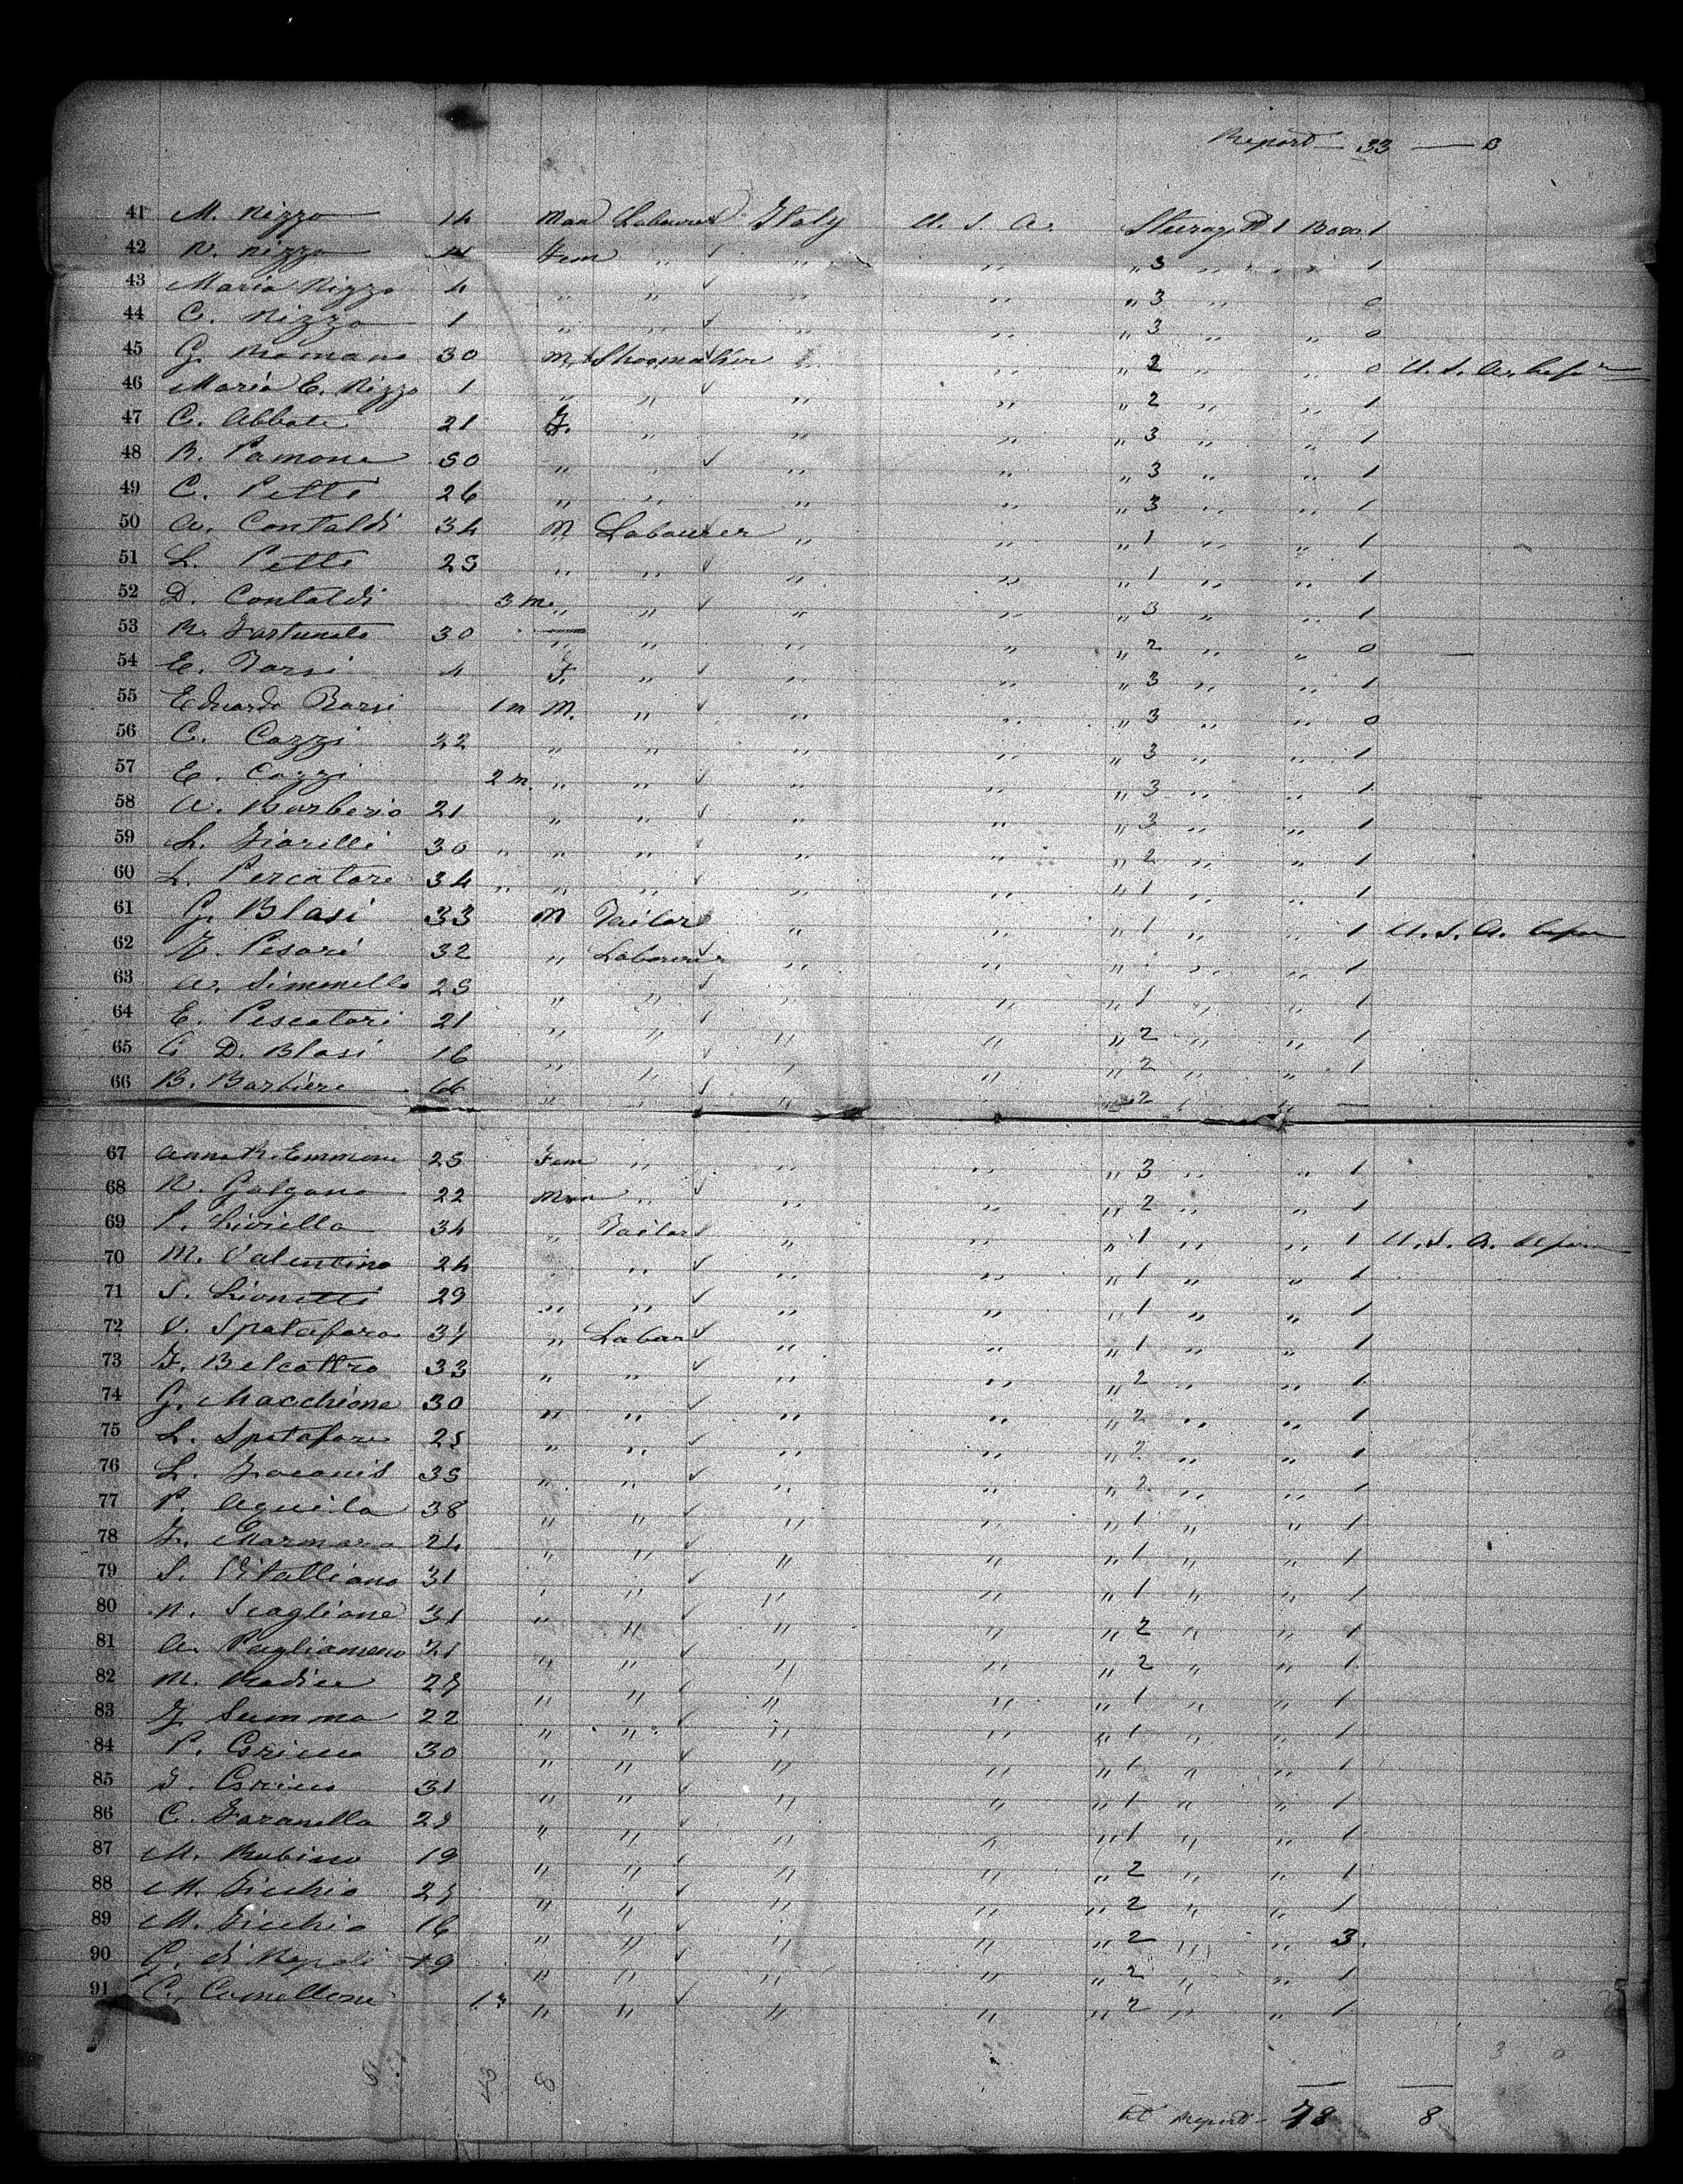 Report — 33 — 8
41 M. Rizzo 14 Man Labourer Italy U. S. A. Steerage № 1 Boxs 1
42 R. Rizzo Fem " " " " 3 " " 1
43 Maria Rizzo 4 " " " " " 3 " 0
44 C. Rizzo 1 " " " " " 3 " " 0
45 G. Romano 30 M Shoemaker " " " 2 " " 0 U. S. A. befor
46 Maria C. Rizzo 1 " " " " " 2 " " 1
47 C. Abbate 21 F. " " " " 3 " " 1
48 R. Pamone 50 " " " " " 3 " " 1
49 C. Petti 26 " " " " " 3 " " 1
50 A. Contaldi 34 M Labourer " " " 1 " " 1
51 L. Petti 25 " " " " " 1 " " 1
52 D. Contaldi 3 m. " " " " " 3 " " 1
53 R. Fortunato 30 " " " " " 2 " " 0
54 E. Tarsi 4 F. " " " " 3 " " 1
55 Eduardo Barsi 1 m M. " " " " 3 " " 0
56 C. Cozzi 22 " " " " " 3 " " 1
57 E. Cozzi 2 m. " " " " " 3 " " 1
58 A. Barberio 21 " " " " " 3 " " 1
59 L. Fiorilli 30 " " " " " " 2 " " 1
60 L. Percatore 34 " " " " " " 1 " " 1
61 G. Blasi 33 M Tailor " " " 1 " " 1 U. S. A. befor
62 F. Pesari 32 " Labourer " " " 1 " " 1
63 A. Simonello 25 " " " " " 1 " " 1
64 E. Pescatori 21 " " " " " 2 " " 1
65 C. D. Blasi 16 " " " " " 2 " " 1
66 B. Barbiere " " " " " 2 "
67 Anna R. Emmone 25 Fem " " " " 3 " " 1
68 R. Galgano 22 Man " " " " 2 " " 1
69 P. Liviello 34 " Tailor " " " 1 " " 1 U. S. A. befor
70 M. Valentino 24 " " " " " 1 " " 1
71 S. Lionetti 29 " " " " " 1 " " 1
72 V. Spatafora 37 " Labor " " " 1 " " 1
73 F. Belcastro 33 " " " " " 2 " " 1
74 G. Macchione 30 " " " " " 2 " " 1
75 L. Spatafora 25 " " " " " 2 " " 1
76 L. 35 " " " " " 2 " " 1
77 P. Aquila 38 " " " " " 1 " " 1
78 F. Marmora 24 " " " " " 1 " " 1
79 S. Vitalliano 31 " " " " " 1 " " 1
80 N. Scaglione 31 " " " " " 2 " " 1
81 A. 21 " " " " " 2 " " 1
82 M. Radice 27 " " " " " 1 " " 1
83 F. Summa 22 " " " " " 1 " " 1
84 P. 30 " " " " " 1 " " 1
85 31 " " " " " 1 " " 1
86 C. Faranella 28 " " " " " 1 " " 1
87 M. Rubino 19 " " " " " 2 " " 1
88 M. Sicchio 25 " " " " " 2 " " 1
89 M. Sicchio 16 " " " " " 2 " " 3
90 G. di Napoli 19 " " " " " 2 " " 1
91 C. " " " " " 2 " " 1
Report — 78 8